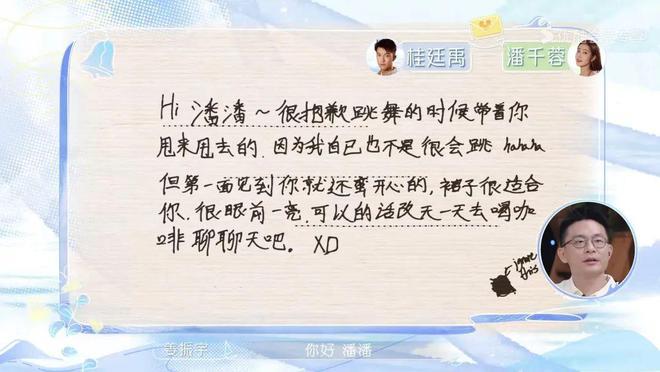 桂廷禹
潘千蓉
Hi 潘潘～很抱歉跳舞的时候带着你
甩来甩去的.因为我自己也不是很会跳 hahaha
但第一面见到你就还蛮开心的,裙子很适合
你.很眼前一亮.可以的话改天一天去喝咖
啡聊聊天吧。XD
ignore
this
姜振宇
你好 潘潘